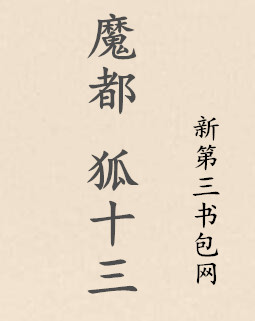 魔都 狐十三
新第三书包网